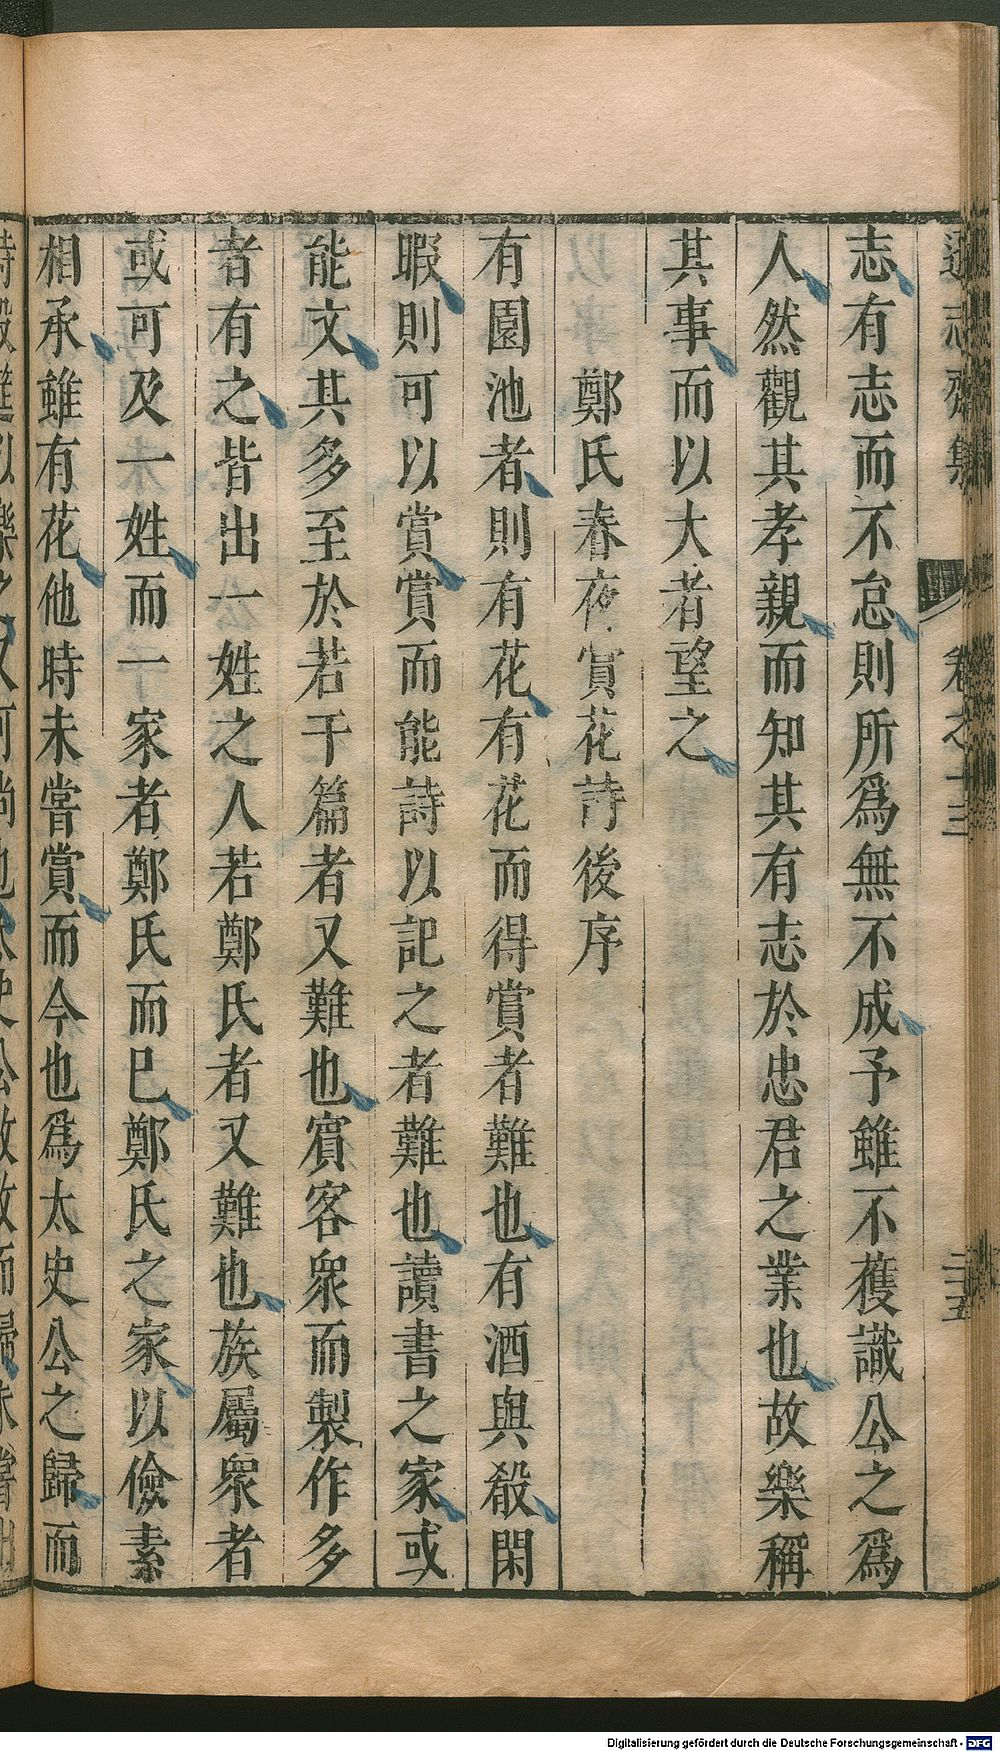 遜志齋集 卷之十三 二十五
志有志而不怠則所爲無不成予雖不蒦識公之爲
人然觀其孝親而知其有志於忠君之業也故樂稱
其事而以大者望之
鄭氏春夜賞花詩後序
有園池者則有花有花而得賞者難也有酒與殽閑
暇則可以賞賞而能詩以記之者難也讀書之家或
能文其多至於若干篇者又難也賓客衆而製作多
者有之皆出一姓之人若鄭氏者又難也族屬衆者
或可及一姓而一家者鄭氏而已鄭氏之家以儉素
相承雖有花他時未嘗賞而今也爲太史公之歸而
Digitalisierung gefördert durch die Deutsche Forschungsgemeinschaft - DFG